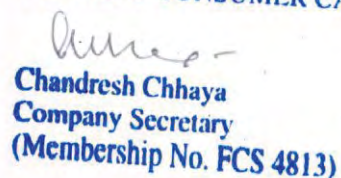 CONSUMER CA
Chandresh Chhaya
Company Secretary
(Membership No. FCS 4813)